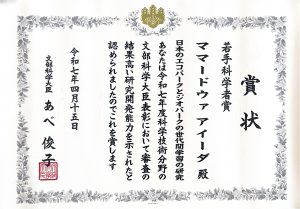 賞状
若手科学者賞
ママードウァ アイーダ 殿
日本のエコパークとジオパークの世代間学習の研究
あなたは令和七年度科学技術分野の
文部科学大臣表彰において審査の
結果高い研究開発能力を示されたと
認められましたのでこれを賞します
令和七年四月十五日
文部科学大臣
あべ 俊子